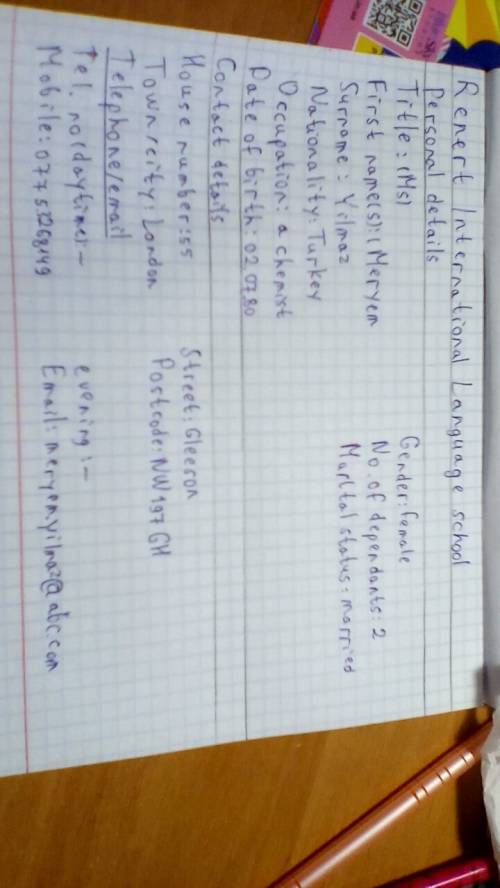 Renert International Language school
Personal details
Title: (Ms) Gender: female
First name(s): (Meryem No of dependants: 2
Surname: Yilmaz Marital status: married
Nationality: Turkey
Occupation: a chemist
Date of birth: 02 07 80
Contact details
House number: 55 Street: Gleeson
Town/city: London Postcode: NW197GH
Telephone/email
Tel. no(daytime: - evening: -
Mobile: Email: meryemyilmaz@abc.com